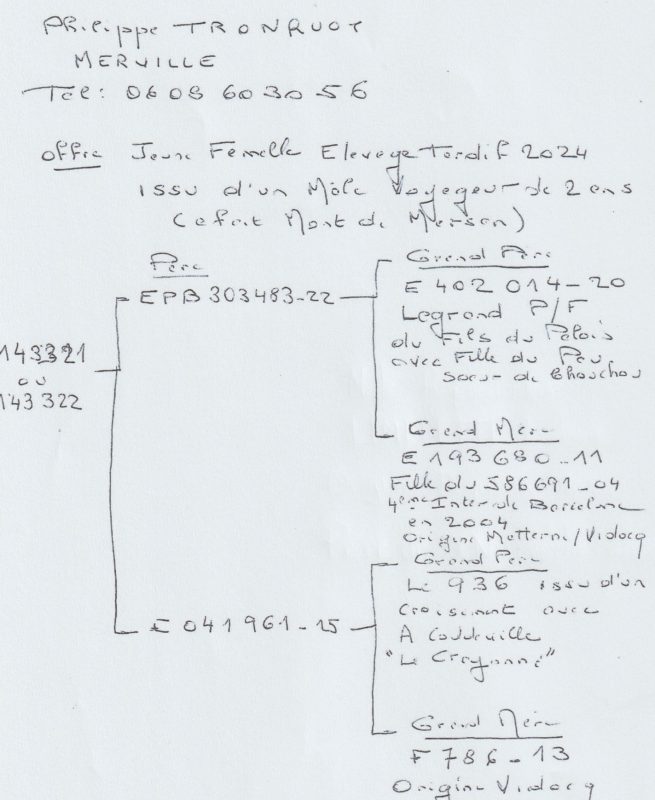 Philippe TRONQUOY
MERVILLE
Tel: 06 08 60 30 56
offre Jeune Femelle Elevage Tardif 2024
issu d'un Mâle Voyageur de 2 ans
(a fait Mont de Marsan)
Père
EPB 303483-22
Grand Père
E 402 014-20
Legrand P/F
du Fils du Palois
avec Fille du Pau
Soeur de Chouchou
143321
ou
143322
Grand Mère
E 193 680-11
Fille du 586691-04
4ème Inter de Barcelone
en 2004
Origine /Vidocq
E 041 961-15
Grand Père
Le 936 issu d'un
Croisement avec
A
"Le Crayonné"
Grand Mère
F 786-13
Origine Vidocq